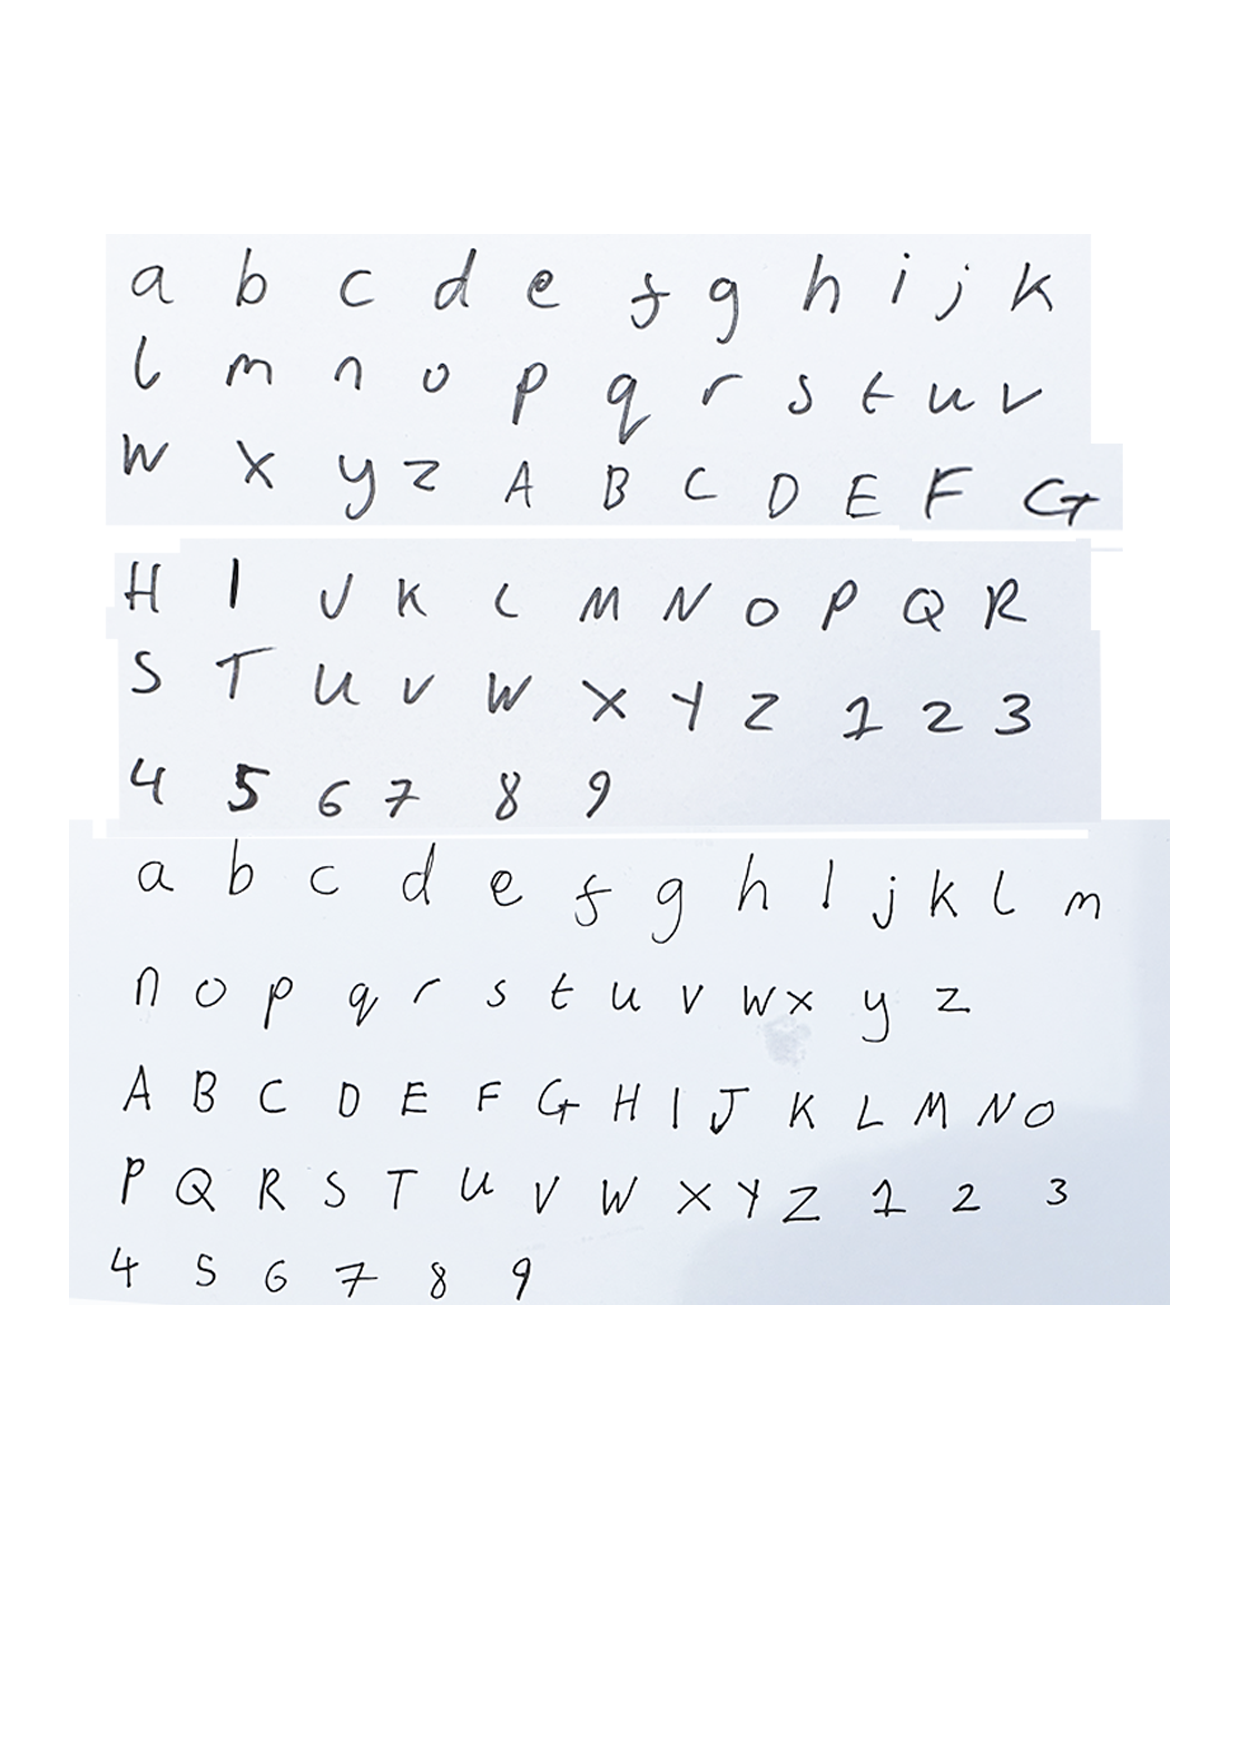 a b c d e f g h i j k
l m n o p q r s t u v
w x y z A B C D E F G
H I J K L M N O P Q R
S T U V W X Y Z 1 2 3
4 5 6 7 8 9
a b c d e f g h i j k l m
n o p q r s t u v w x y z
A B C D E F G H I J K L M N O
P Q R S T U V W X Y Z 1 2 3
4 5 6 7 8 9